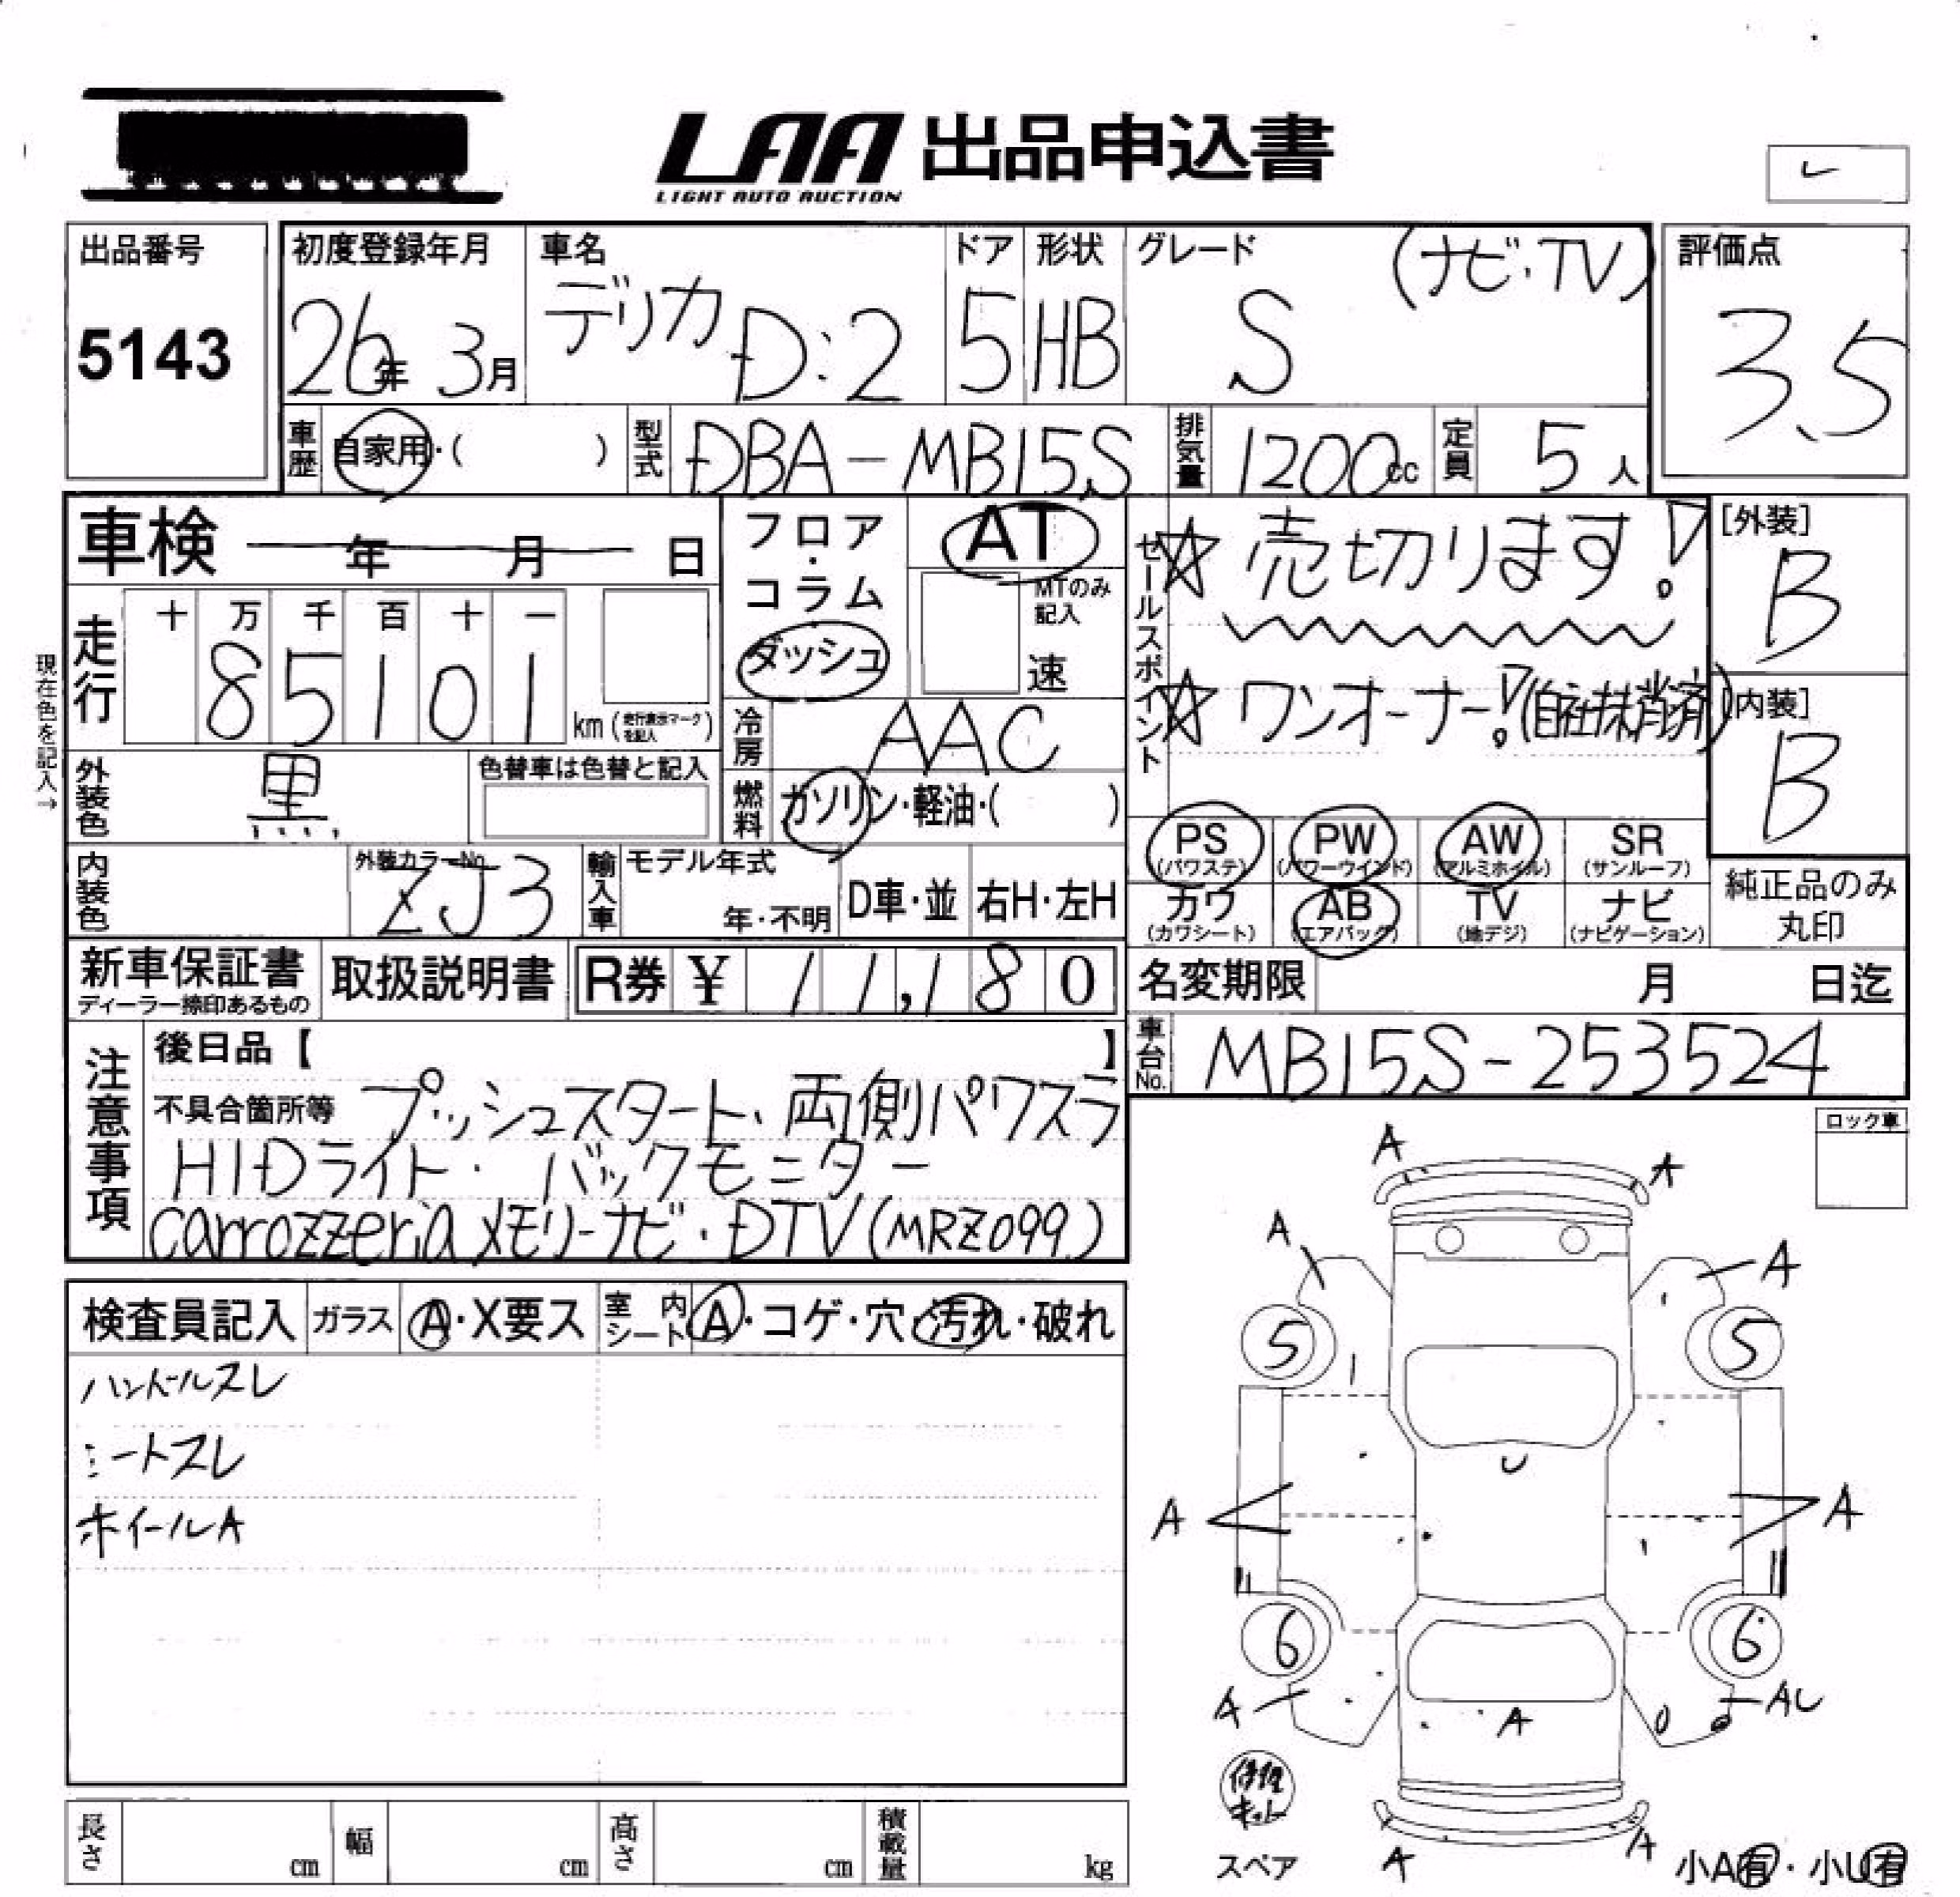 LAA 出品申込書
LIGHT AUTO AUCTION
出品番号
5143
初度登録年月
26年 3月
車名
デリカ D:2
ドア
5
形状
HB
グレード
S (ナビ・TV)
評価点
3.5
車歴 自家用・( )
型式 DBA-MB15S
排気量 1200cc
定員 5人
車検 年 月 日
フロア・コラム
ダッシュ
AT
MTのみ記入
速
セールスポイント
☆ 売切ります!
☆ ワンオーナー!(自社抹消済)
[外装]
B
[内装]
B
現在色を記入→
走行
十 万 千 百 十 一
8 5 1 0 1 km (走行表示マークを記入)
冷房 AAC
外装色 黒
色替車は色替と記入
燃料 ガソリン・軽油・( )
内装色
外装カラーNo.
ZJ3
輸入車
モデル年式
年・不明
D車・並
右H・左H
PS (パワステ)
PW (パワーウインド)
AW (アルミホイル)
SR (サンルーフ)
カワ (カワシート)
AB (エアバック)
TV (地デジ)
ナビ (ナビゲーション)
純正品のみ
丸印
新車保証書
ディーラー捺印あるもの
取扱説明書
R券 ¥ 11,180
名変期限 月 日迄
車台No. MB15S-253524
注意事項
後日品【 】
不具合箇所等 プッシュスタート、両側パワスラ
HIDライト・バックモニター
carrozzeriaメモリーナビ・DTV(MRZ099)
ロック車
検査員記入 ガラス A・X要ス 室内シート A・コゲ・穴・汚れ・破れ
ハンドルスレ
シートスレ
ホイールA
A
A
A
A
5
5
U
A
A
6
6
A
A
AU
修理キット
スペア
A
A
小A有・小U有
長さ cm
幅 cm
高さ cm
積載量 kg